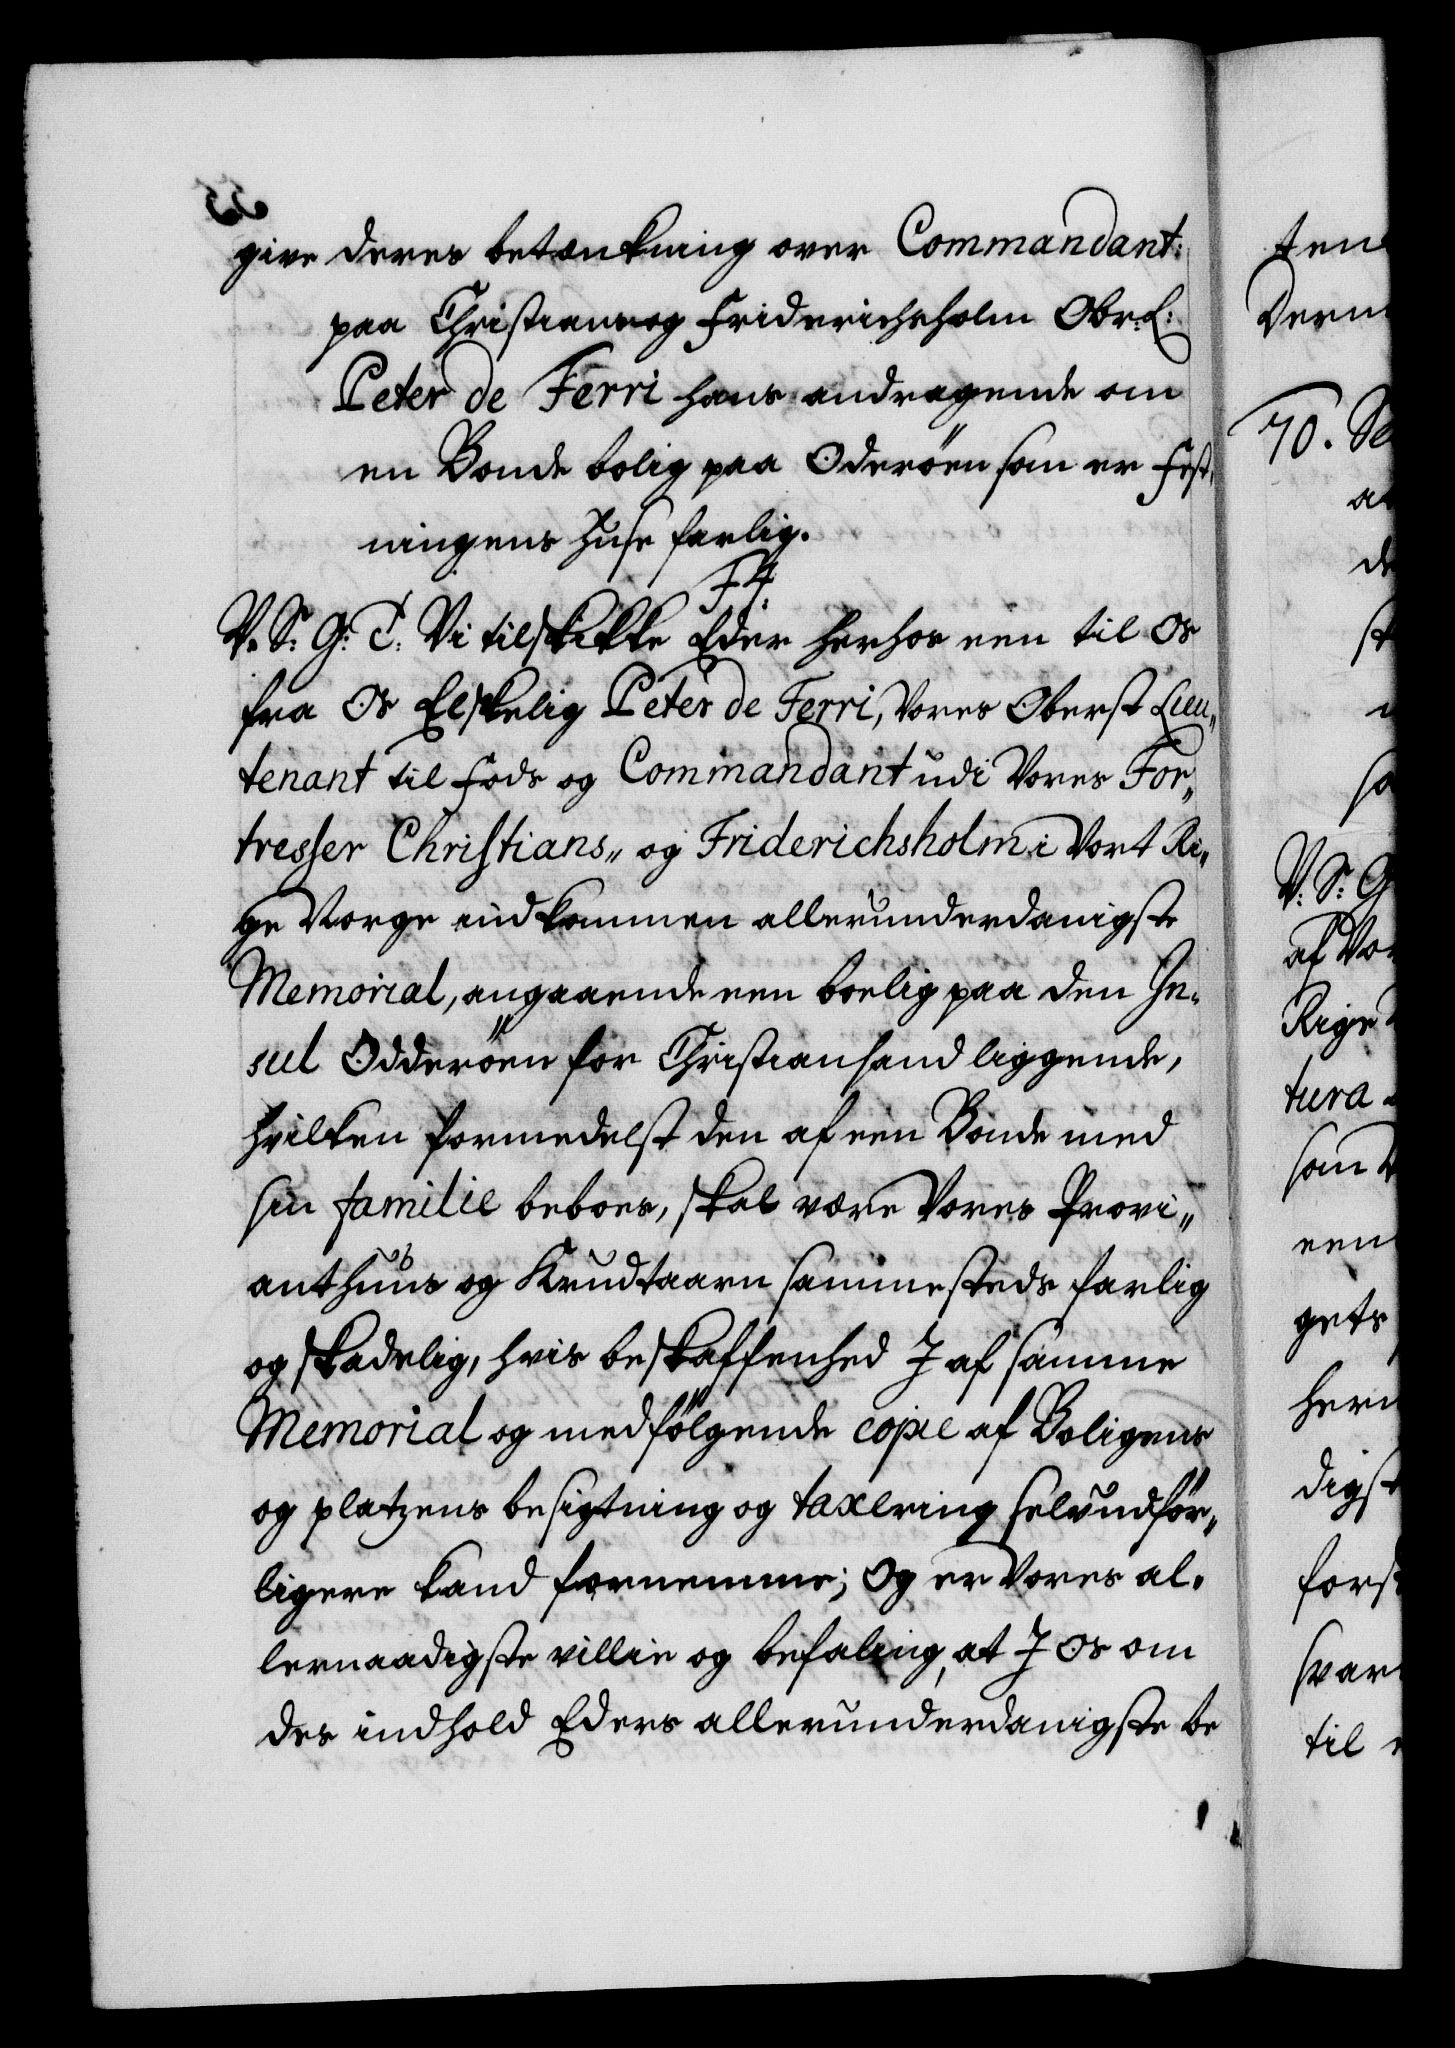 give deres betænkning over Commandant:
paa Christians og Friderichsholm Obr: L:
Peter de Ferri hans andragende om
en Bonde bolig paa Oderöen som er Fest„
ningens Huse farlig.
F4.
V. S: G: T: Vi tilskikke Eder herhos een til Os
fra Os Elskelig Peter de Ferri, Vores Oberst Lieu„
tenant til Fods og Commandant udi Vores For„
tresser Christians„ og Friderichsholm i Vort Ri„
ge Norge indkommen allerunderdanigste
Memorial, angaaende een boelig paa den In„
sul Odderöen for Christiansand liggende,
hvilken formedelst den af een Bonde med
sin familie beboes, skal være Vores Provi„
anthuus og Krudtaarn sammesteds farlig
og skadelig, hvis beskaffenhed J af samme
Memorial og medfölgende copie af Boligens
og platzens besigtning og taxering selv udför„
ligere kand fornemme; Og er Vores al„
lernaadigste villie og befaling, at J Os om
des indhold Eders allerunderdanigste be
ten
Dern
70. Se
a
de
st
so
V: S: G
af Vor
Rige
tura
som
een
gets
her
digst
forst
svar
til